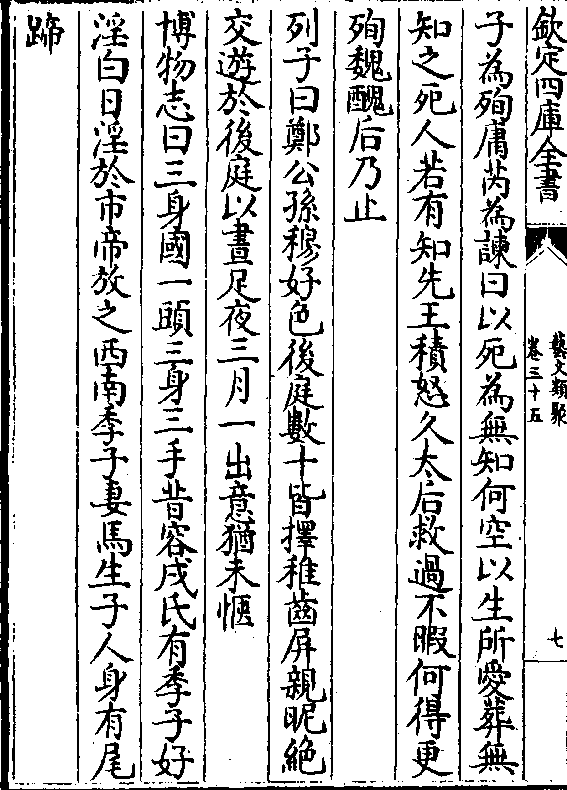 欽定四庫全書
藝文類聚
卷三十五
七
子為殉庸芮為諫曰以死為無知何空以生所愛葬無
知之死人若有知先王積怒久太后救過不暇何得更
殉魏醜后乃止
列子曰鄭公孫穆好色後庭數十皆擇稚齒屏親昵絶
交遊於後庭以晝足夜三月一出意猶未愜
博物志曰三身國一頭三身三手昔容戌氏有季子好
淫白日淫於市帝放之西南季子妻馬生子人身有尾
蹄